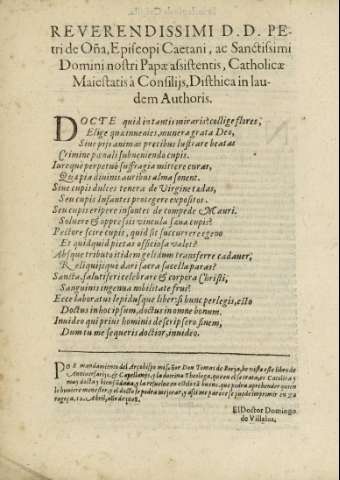 REVERENDISSIMI D. D. PE-
tri de Oña, Episcopi Caetani, ac Sanctissimi
Domini nostri Papæ assistentis, Catholicæ
Maiestatis à Consilijs, Disthica in lau-
dem Authoris.
DOCTE quid in tantis miraris? collige flores,
Elige quæ inuenies, munera grata Deo,
Siue pijs animas precibus lustrare beatas
Crimine pœnali subueniendo cupis.
Iureque perpetuo suffragia mittere curas,
Quæ pia diuinis auribus alma sonent.
Siue cupis dulces tenera de Virgine laudes,
Seu cupis Infantes protegere expositos.
Seu cupis eripere insontes de compede Mauri.
Soluere & oppressis vincula sæua cupis?
Pectore scire cupis, quid sit succurrere egeno
Et quidquid pietas officiosa valet?
Absque tributo itidem gelidum transferre cadauer,
Reliquijsque dari sacra sacella paras?
Sancta salutiferi celebrare & corpora Christi,
Sanguinis ingenua nobilitate frui?
Ecce laboratus lepidusque liber: si hunc perlegis, esto
Doctus in hoc ipsum, doctus in omne bonum.
Inuideo qui prius hominis descripsero finem,
Dum tu me sequeris doctior, inuideo.
POR mandamiento del Arzobispo mi señor Don Tomas de Borja, he visto este libro de
Aniuersarios, & Capellanias, y la dotrina Theologa, que en el se trata, es Catolica y
muy docta y bien fundada, y la resuelue en estilo tã bueno, que podra aprehender quien
le huuiere menester, y el docto se podra mejorar, y assi me parece se puede imprimir en Ça
ragoça, 12. Abril, año de 1608.
El Doctor Domingo
de Villalua.